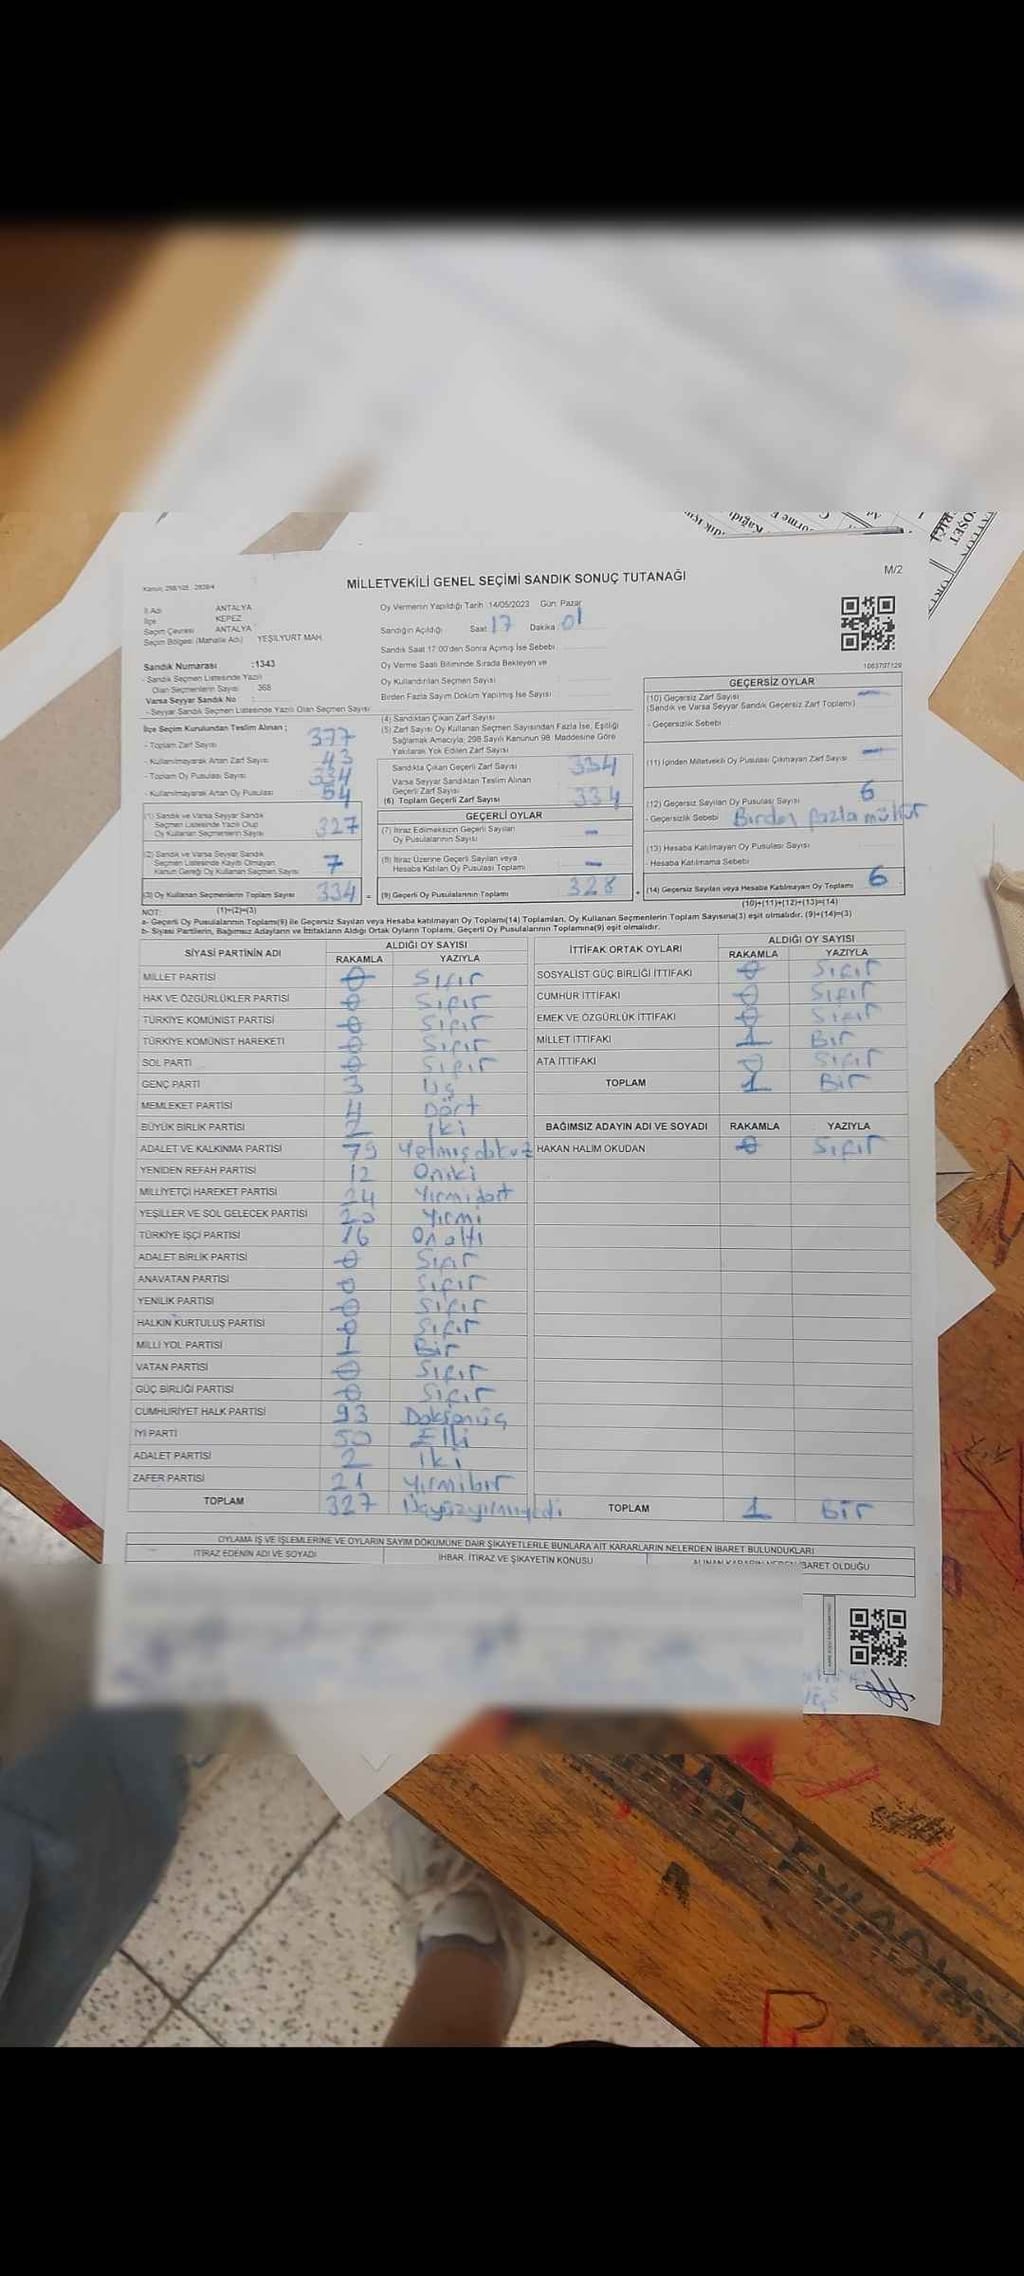 MİLLETVEKİLİ GENEL SEÇİMİ SANDIK SONUÇ TUTANAĞI
M/2
İl Adı ANTALYA
İlçe KEPEZ
Seçim Çevresi ANTALYA
Seçim Bölgesi (Mahalle Adı) YEŞİLYURT MAH.
Oy Vermenin Yapıldığı Tarih :14/05/2023 Gün: Pazar
Sandığın Açıldığı Saat 17 Dakika 01
Sandık Saat 17:00'den Sonra Açmış İse Sebebi
Oy Verme Saati Bitiminde Sırada Bekleyen ve
Oy Kullandırılan Seçmen Sayısı
Birden Fazla Sayım Döküm Yapılmış İse Sayısı
1063797129
Sandık Numarası :1343
- Sandık Seçmen Listesinde Yazılı
Olan Seçmenlerin Sayısı 368
Varsa Seyyar Sandık No :
- Seyyar Sandık Seçmen Listesinde Yazılı Olan Seçmen Sayısı
İlçe Seçim Kurulundan Teslim Alınan ;
- Toplam Zarf Sayısı 377
- Kullanılmayarak Artan Zarf Sayısı 43
- Toplam Oy Pusulası Sayısı
- Kullanılmayarak Artan Oy Pusulası 54
(1) Sandık ve Varsa Seyyar Sandık
Seçmen Listesinde Yazılı Olup
Oy Kullanan Seçmenlerin Sayısı 327
(2) Sandık ve Varsa Seyyar Sandık
Seçmen Listesinde Kayıtlı Olmayan
Kanun Gereği Oy Kullanan Seçmen Sayısı 7
(3) Oy Kullanan Seçmenlerin Toplam Sayısı 334 =
(4) Sandıktan Çıkan Zarf Sayısı
(5) Zarf Sayısı Oy Kullanan Seçmen Sayısından Fazla İse, Eşitliği
Sağlamak Amacıyla; 298 Sayılı Kanunun 98. Maddesine Göre
Yakılarak Yok Edilen Zarf Sayısı
Sandıkta Çıkan Geçerli Zarf Sayısı 334
Varsa Seyyar Sandıktan Teslim Alınan
Geçerli Zarf Sayısı
(6) Toplam Geçerli Zarf Sayısı 334
GEÇERLİ OYLAR
(7) İtiraz Edilmeksizin Geçerli Sayılan
Oy Pusulalarının Sayısı -
(8) İtiraz Üzerine Geçerli Sayılan veya
Hesaba Katılan Oy Pusulası Toplamı -
(9) Geçerli Oy Pusulalarının Toplamı 328 +
GEÇERSİZ OYLAR
(10) Geçersiz Zarf Sayısı -
(Sandık ve Varsa Seyyar Sandık Geçersiz Zarf Toplamı)
- Geçersizlik Sebebi :
(11) İçinden Milletvekili Oy Pusulası Çıkmayan Zarf Sayısı -
(12) Geçersiz Sayılan Oy Pusulası Sayısı 6
- Geçersizlik Sebebi Birden fazla mühür
(13) Hesaba Katılmayan Oy Pusulası Sayısı
- Hesaba Katılmama Sebebi
(14) Geçersiz Sayılan veya Hesaba Katılmayan Oy Toplamı 6
NOT: (1)+(2)=(3)
(10)+(11)+(12)+(13)=(14)
a- Geçerli Oy Pusulalarının Toplamı(9) ile Geçersiz Sayılan veya Hesaba Katılmayan Oy Toplamı(14) Toplamları, Oy Kullanan Seçmenlerin Toplam Sayısına(3) eşit olmalıdır. (9)+(14)=(3)
b- Siyasi Partilerin, Bağımsız Adayların ve İttifakların Aldığı Ortak Oyların Toplamı, Geçerli Oy Pusulalarının Toplamına(9) eşit olmalıdır.
SİYASİ PARTİNİN ADI ALDIĞI OY SAYISI
RAKAMLA YAZIYLA
MİLLET PARTİSİ 0 Sıfır
HAK VE ÖZGÜRLÜKLER PARTİSİ 0 Sıfır
TÜRKİYE KOMÜNİST PARTİSİ 0 Sıfır
TÜRKİYE KOMÜNİST HAREKETİ 0 Sıfır
SOL PARTİ 0 Sıfır
GENÇ PARTİ 3 Üç
MEMLEKET PARTİSİ 4 Dört
BÜYÜK BİRLİK PARTİSİ 2 İki
ADALET VE KALKINMA PARTİSİ 79 Yetmişdokuz
YENİDEN REFAH PARTİSİ 12 Oniki
MİLLİYETÇİ HAREKET PARTİSİ 24 Yirmidört
YEŞİLLER VE SOL GELECEK PARTİSİ 20 Yirmi
TÜRKİYE İŞÇİ PARTİSİ 16 Onaltı
ADALET BİRLİK PARTİSİ 0 Sıfır
ANAVATAN PARTİSİ 0 Sıfır
YENİLİK PARTİSİ 0 Sıfır
HALKIN KURTULUŞ PARTİSİ 0 Sıfır
MİLLİ YOL PARTİSİ 1 Bir
VATAN PARTİSİ 0 Sıfır
GÜÇ BİRLİĞİ PARTİSİ 0 Sıfır
CUMHURİYET HALK PARTİSİ 93 Doksanüç
İYİ PARTİ 50 Elli
ADALET PARTİSİ 2 İki
ZAFER PARTİSİ 21 Yirmibir
TOPLAM 327 Üçyüzyirmiyedi
İTTİFAK ORTAK OYLARI ALDIĞI OY SAYISI
RAKAMLA YAZIYLA
SOSYALİST GÜÇ BİRLİĞİ İTTİFAKI 0 Sıfır
CUMHUR İTTİFAKI 0 Sıfır
EMEK VE ÖZGÜRLÜK İTTİFAKI 0 Sıfır
MİLLET İTTİFAKI 1 Bir
ATA İTTİFAKI 0 Sıfır
TOPLAM 1 Bir
BAĞIMSIZ ADAYIN ADI VE SOYADI RAKAMLA YAZIYLA
HAKAN HALİM OKUDAN 0 Sıfır
TOPLAM 1 Bir
OYLAMA İŞ VE İŞLEMLERİNE VE OYLARIN SAYIM DÖKÜMÜNE DAİR ŞİKAYETLERLE BUNLARA AİT KARARLARIN NELERDEN İBARET BULUNDUKLARI
İTİRAZ EDENİN ADI VE SOYADI İHBAR, İTİRAZ VE ŞİKAYETİN KONUSU İBARET OLDUĞU